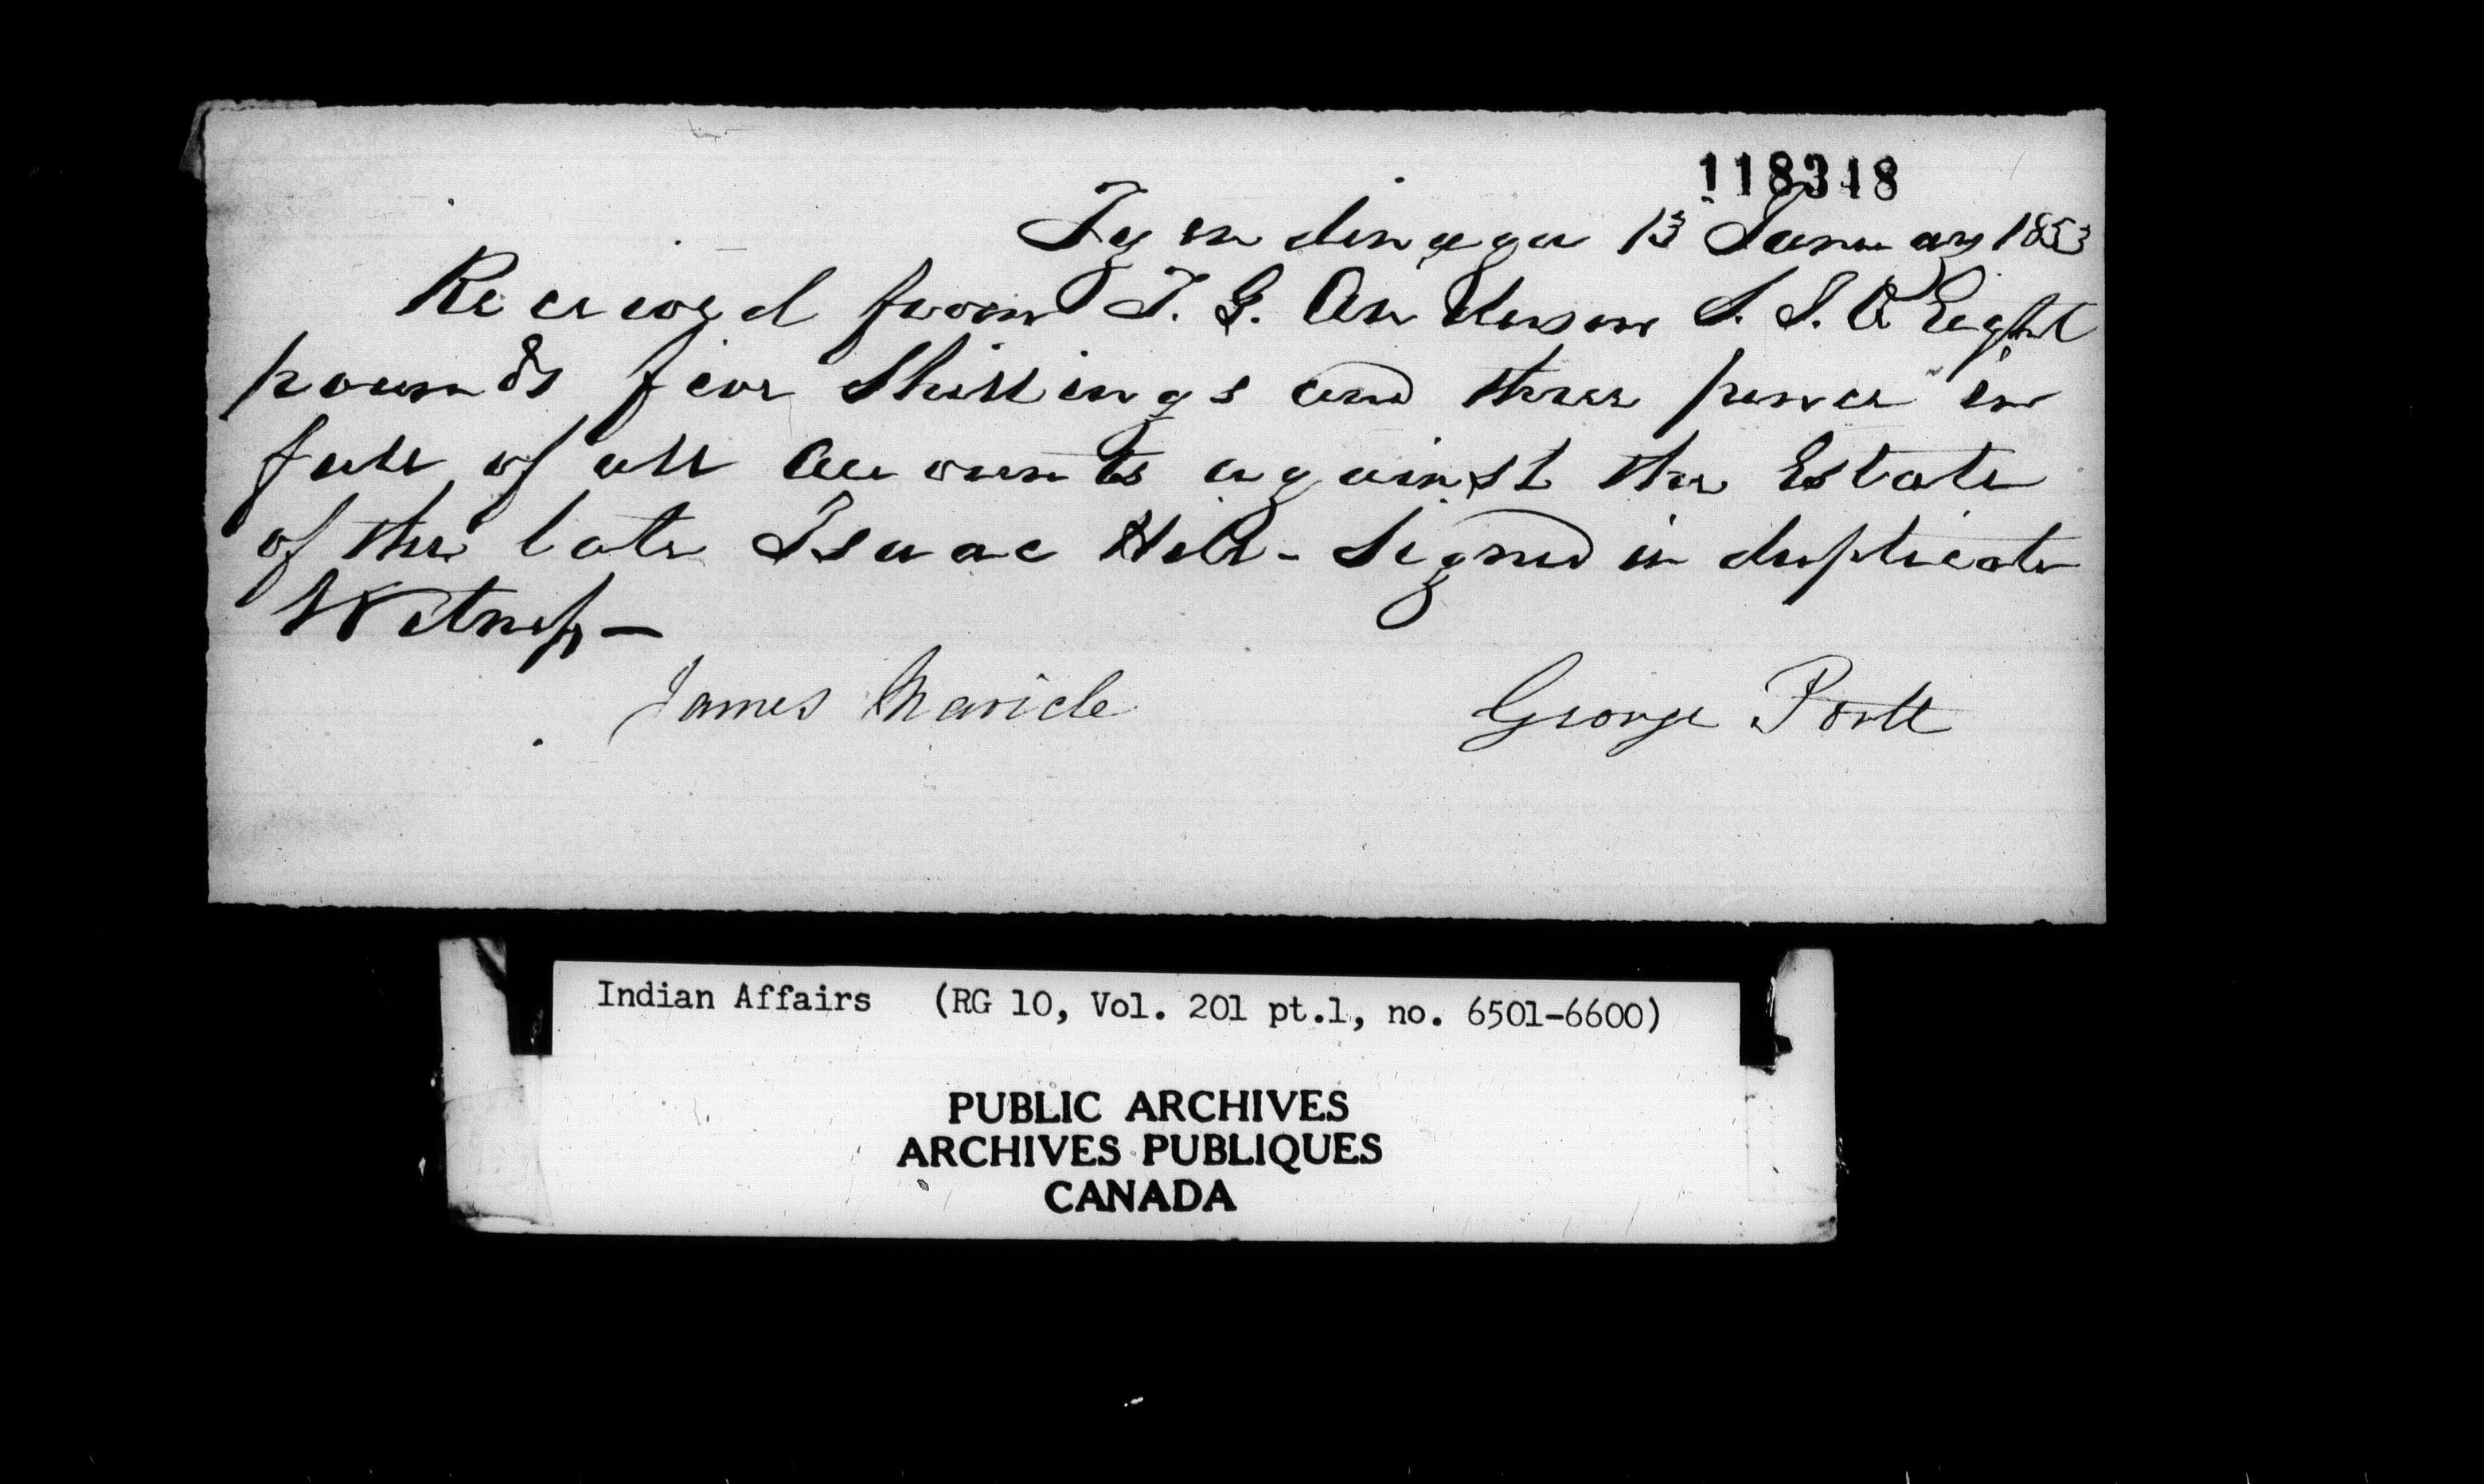 118318
Tyendinaga 13 January 1853
Received from T. G. Anderson S. I. A Eight
pounds five Shillings and three pence in
full of all Accounts against the Estate
of the late Isaac Hill - Signed in duplicate
Witness -
James Maricle
George Portt
Indian Affairs (RG 10, Vol. 201 pt.1, no. 6501-6600)
PUBLIC ARCHIVES
ARCHIVES PUBLIQUES
CANADA